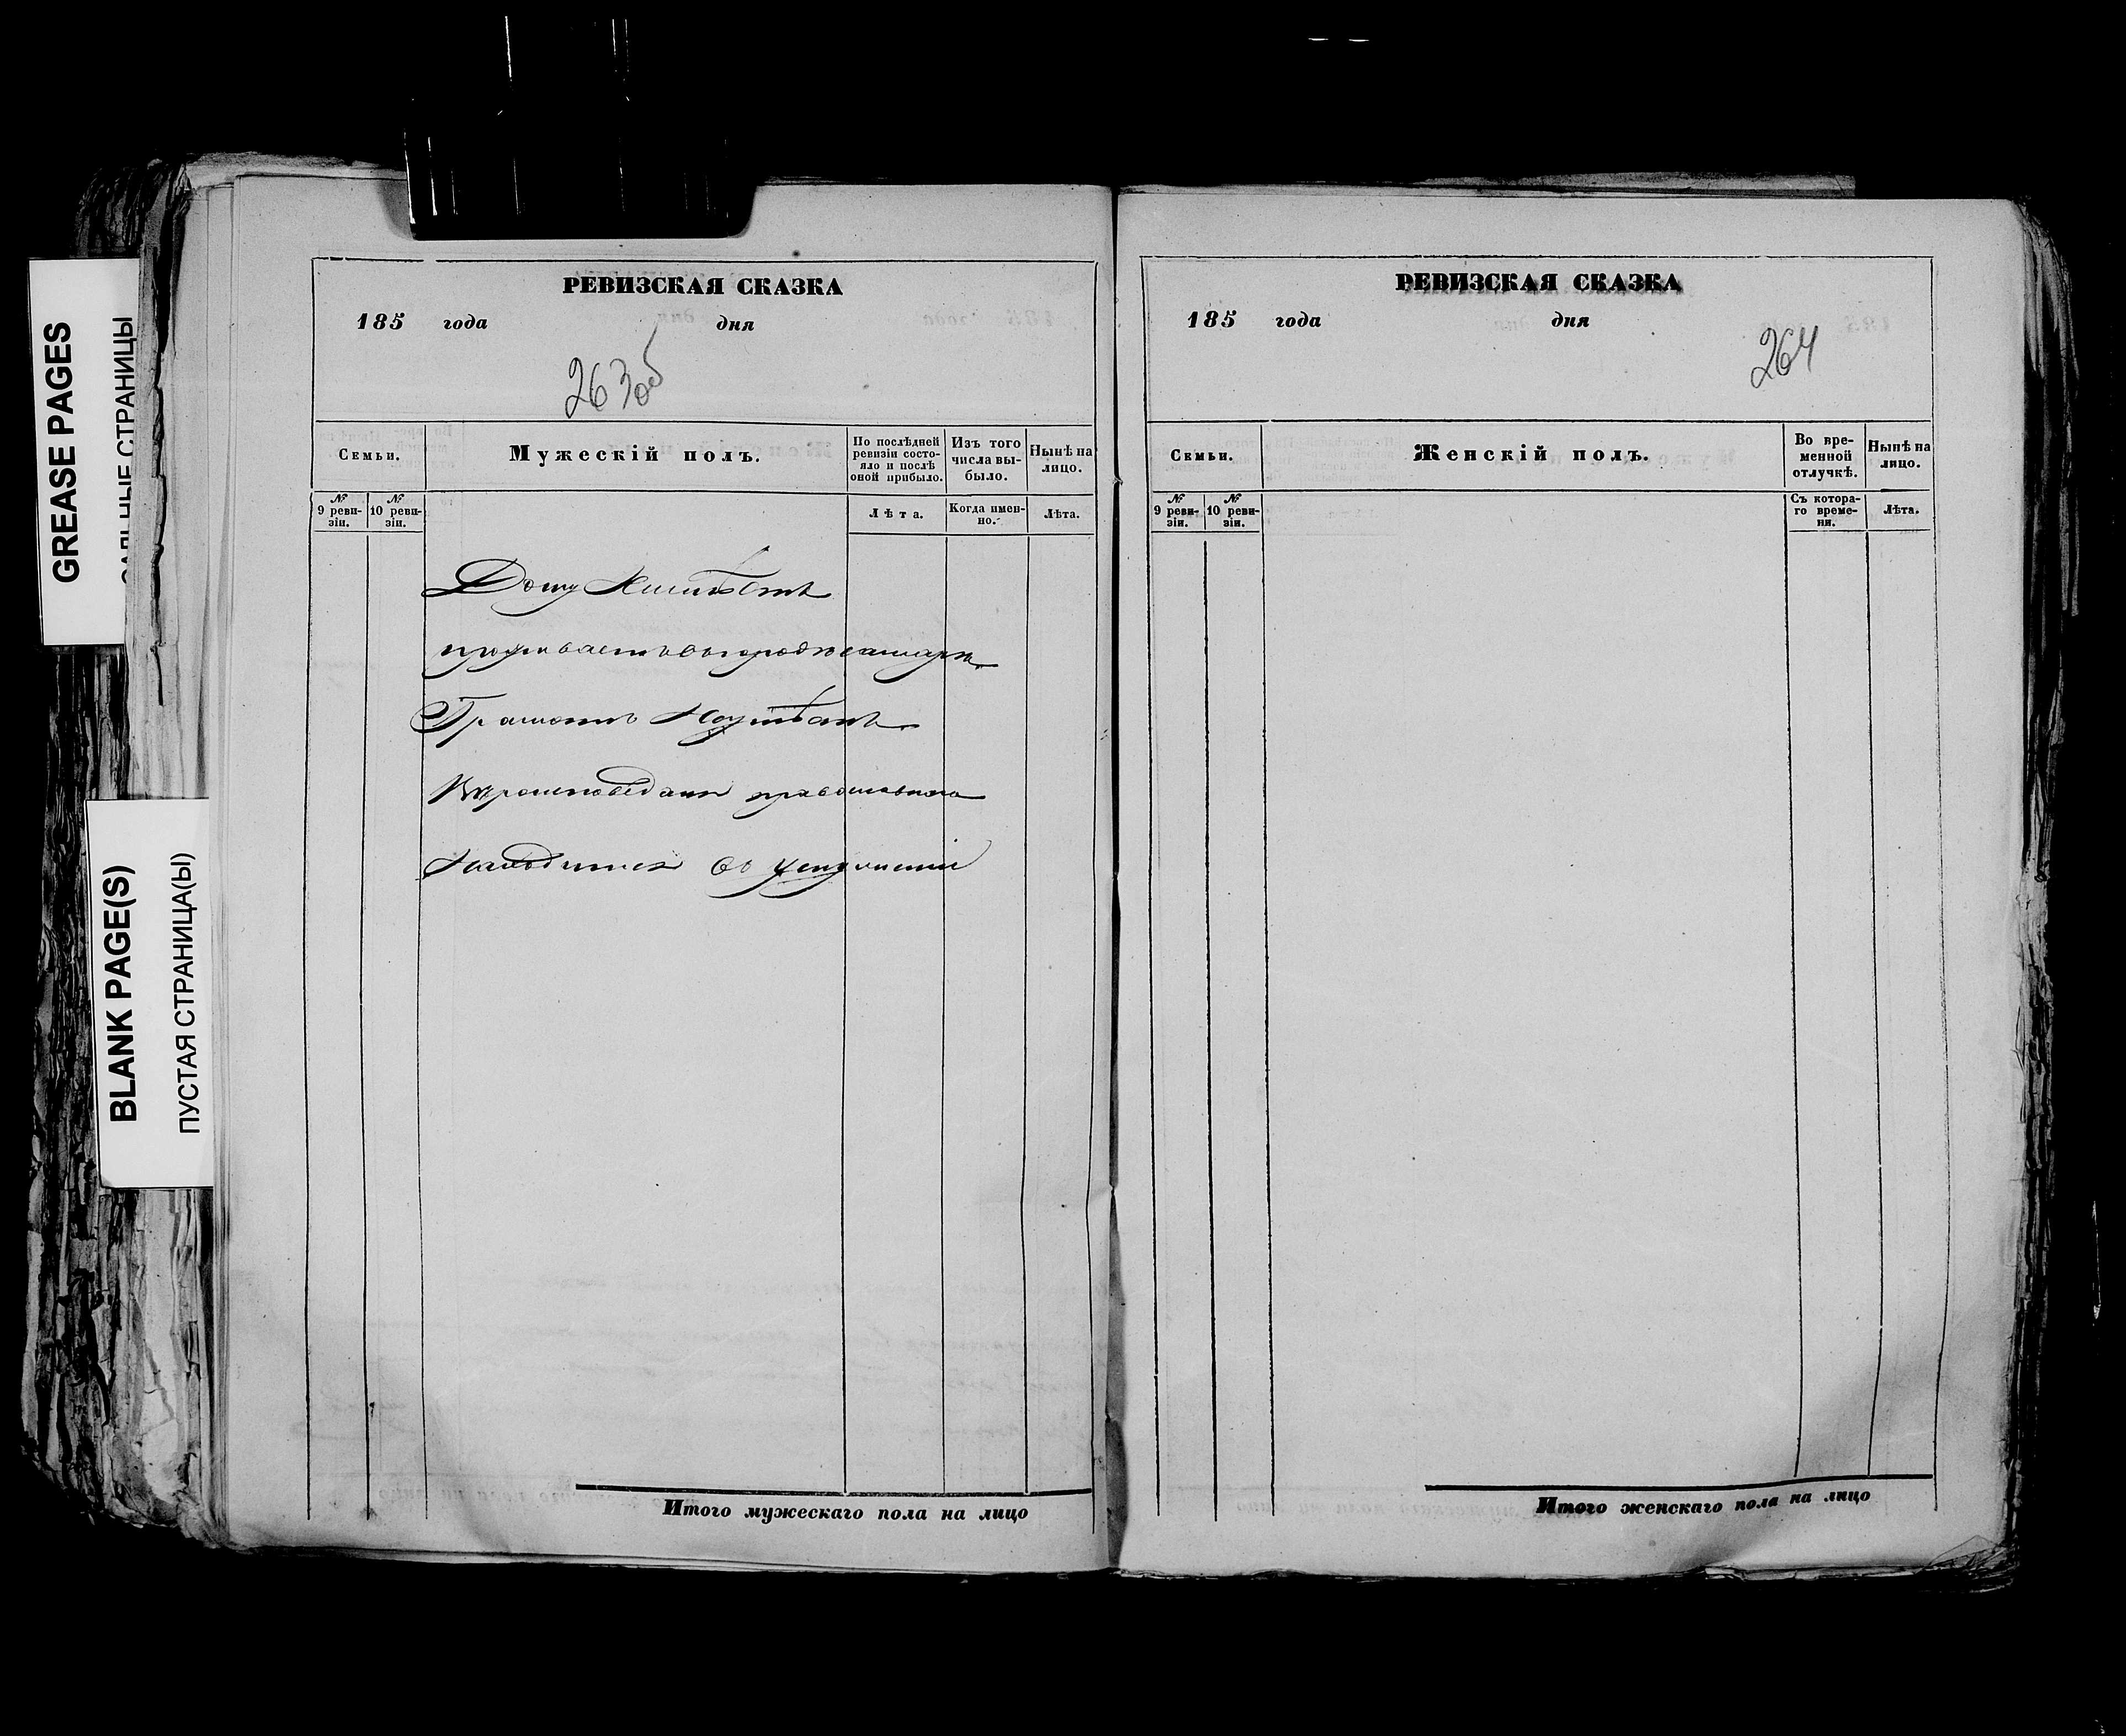 GREASE PAGES
САЛЬНЫЕ СТРАНИЦЫ
BLANK PAGE(S)
ПУСТАЯ СТРАНИЦА(Ы)
РЕВИЗСКАЯ СКАЗКА
185 года дня
263об
Семьи.
Мужескій полъ.
По послѣдней
ревизіи состо-
яло и послѣ
оной прибыло.
Изъ того
числа вы-
было.
Нынѣ на
лицо.
№
9 реви-
зіи.
№
10 реви-
зіи.
Лѣта.
Когда имен-
но.
Лѣта.
Дому Неимѣетъ
проживаетъ въ городе самаре
Грамоте Неумѣетъ
Вероисповеданія православнаго
Находится въ услужении
Итого мужескаго пола на лицо
РЕВИЗСКАЯ СКАЗКА
185 года дня
264
Семьи.
Женскій полъ.
Во вре-
менной
отлучкѣ.
Нынѣ на
лицо.
№
9 реви-
зіи.
№
10 реви-
зіи.
Съ котора-
го време-
ни.
Лѣта.
Итого женскаго пола на лицо